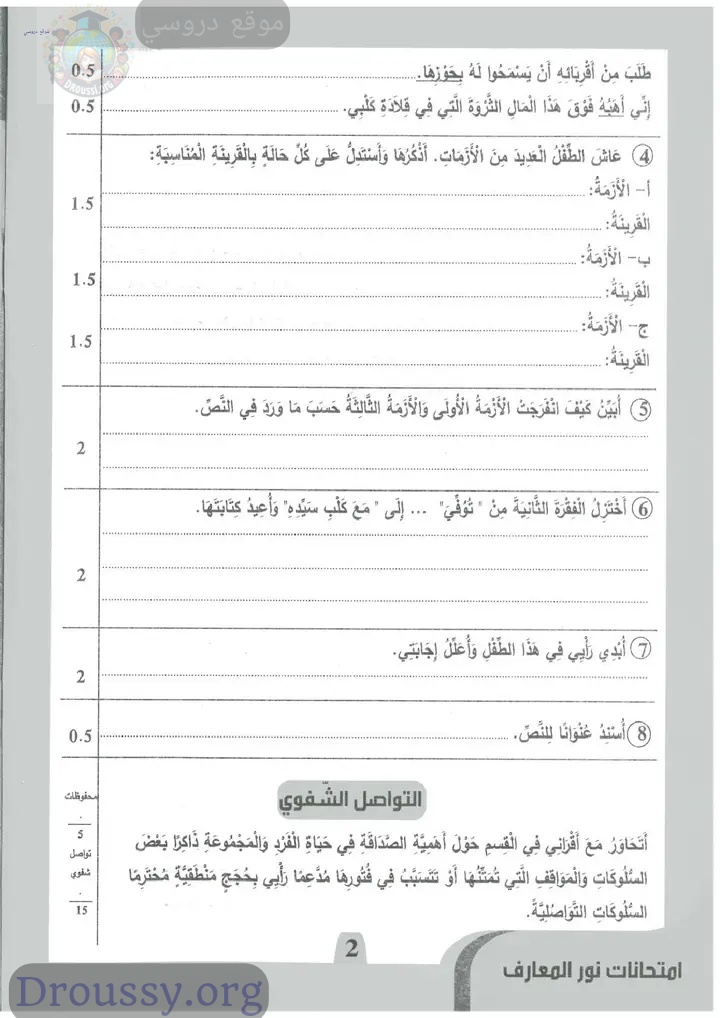 موقع دروسي
موقع دروسي
DROUSSI.ORG
طَلَبَ مِنْ أَقْرِبَائِهِ أَنْ يَسْمَحُوا لَهُ بِحَوْزِهَا. 0.5
إِنِّي أَهَبُهُ فَوْقَ هَذَا الْمَالِ الثَّرْوَةَ الَّتِي فِي قِلَادَةِ كَلْبِي. 0.5
④ عَاشَ الطِّفْلُ الْعَدِيدَ مِنَ الْأَزَمَاتِ. أَذْكُرُهَا وَأَسْتَدِلُّ عَلَى كُلِّ حَالَةٍ بِالْقَرِينَةِ الْمُنَاسِبَةِ:
أ- الْأَزَمَةُ:
1.5
الْقَرِينَةُ:
ب- الْأَزَمَةُ:
1.5
الْقَرِينَةُ:
ج- الْأَزَمَةُ:
1.5
الْقَرِينَةُ:
⑤ أُبَيِّنُ كَيْفَ انْفَرَجَتْ الْأَزْمَةُ الْأُولَى وَالْأَزَمَةُ الثَّالِثَةُ حَسَبَ مَا وَرَدَ فِي النَّصِّ.
2
⑥ أَخْتَزِلُ الْفِقْرَةَ الثَّانِيَةَ مِنْ " تُوُفِّيَ" ... إِلَى " مَعَ كَلْبِ سَيِّدِهِ" وَأُعِيدُ كِتَابَتَهَا.
2
⑦ أُبْدِي رَأْيِي فِي هَذَا الطِّفْلِ وَأُعَلِّلُ إِجَابَتِي.
2
⑧ أُسْنِدُ عُنْوَانًا لِلنَّصِّ. 0.5
التواصل الشّفوي
محفوظات
5
تواصل
شفوي
15
أَتَحَاوَرُ مَعَ أَقْرَانِي فِي الْقِسْمِ حَوْلَ أَهَمِيَّةِ الصَّدَاقَةِ فِي حَيَاةِ الْفَرْدِ وَالْمَجْمُوعَةِ ذَاكِرًا بَعْضَ
السُّلُوكَاتِ وَالْمَوَاقِفِ الَّتِي تُمَتِّنُهَا أَوْ تَتَسَبَّبُ فِي فُتُورِهَا مُدَعِّمًا رَأْيِي بِحُجَجٍ مَنْطَقِيَّةٍ مُحْتَرِمًا
السُّلُوكَاتِ التَّوَاصُلِيَّةَ.
2
امتحانات نور المعارف
Droussy.org